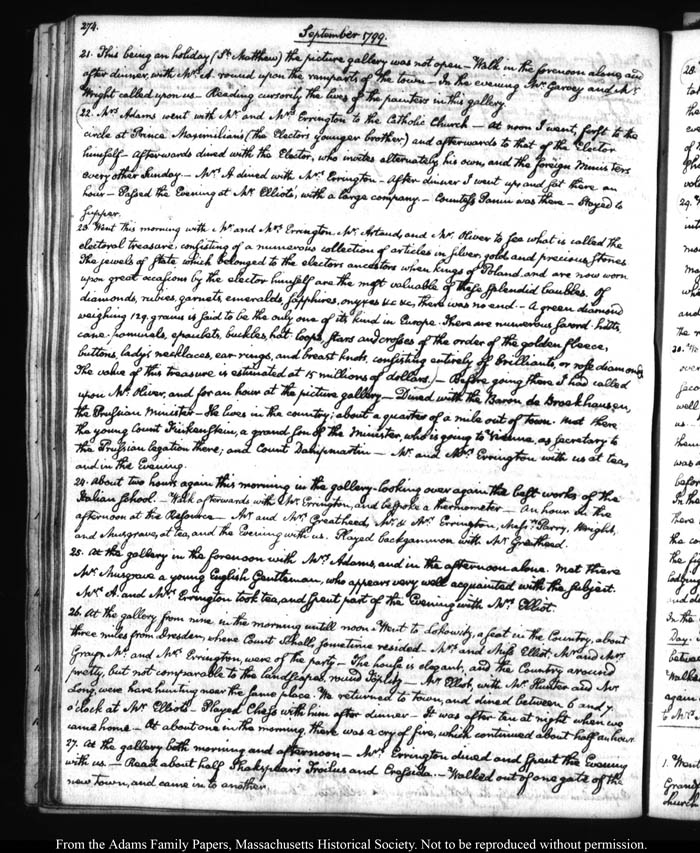 274.
September 1799.
21. This being an holiday (St. Matthew) the picture gallery was not open — Walk in the forenoon alone, and
after dinner, with Mrs. A. round upon the ramparts of the town — In the evening Mr. Garvey and Mr.
Wright called upon us — Reading cursorily the lives of the painters in this gallery.
22. Mrs. Adams went with Mr. and Mrs. Errington to the Catholic Church — At noon I went, first to the
circle at Prince Maximilians (the Electors younger brother) and afterwards to that of the Elector
himself — Afterwards dined with the Elector, who invites alternately his own, and the foreign Ministers
every other Sunday. — Mrs. A dined with Mrs. Errington — After dinner I went up and sat there an
hour — Passed the Evening at Mr. Elliots, with a large company — Countess Panin was there — Stayed to
supper.
23. Went this morning with Mr. and Mrs. Errington, Mr. Artaud, and Mr. Oliver to see what is called the
electoral treasure, consisting of a numerous collection of articles in silver, gold and precious stones
The jewels of State which belonged to the electors ancestors when kings of Poland, and are now worn
upon great occasions by the elector himself are the most valuable of these splendid baubles. Of
diamonds, rubies, garnets, emeralds, sapphires, onyxes &c &c, there was no end. — A green diamond
weighing 129. grains is said to be the only one of its kind in Europe. There are numerous sword-hilts,
cane-pommels, epaulets, buckles, hat-loops, stars and crosses of the order of the golden fleece,
buttons, lady's necklaces, ear-rings, and breast knots, consisting entirely of brilliants, or rose diamonds
The value of this treasure is estimated at 15 millions of dollars.) — Before going there I had called
upon Mr. Oliver, and for an hour at the picture gallery — Dined with the Baron de Brockhausen,
the Prussian Minister — He lives in the country; about a quarter of a mile out of town. Met there
the young Count Finkenstein, a grandson of the Minister, who is going to Vienna, as Secretary to
the Prussian legation there; and Count Dampmartin — Mr. and Mrs. Errington with us at tea,
and in the Evening.
24. About two hours again this morning in the gallery — looking over again the best works of the
Italian school. — Walk afterwards with Mr. Errington, and bespoke a thermometer — An hour in the
afternoon at the Resource — Mr. and Mrs. Greatheed, Mr. & Mrs. Errington, Messrs. Parry, Wright,
and Musgrave, at tea, and the Evening with us. Played backgammon with Mr. Greatheed.
25. At the gallery in the forenoon with Mrs. Adams, and in the afternoon alone. Met there
Mr. Musgrave a young English Gentleman, who appears very well acquainted with the subject.
Mrs. A. and Mrs. Errington took tea, and spent part of the Evening with Mrs. Elliot.
26. At the gallery from nine in the morning untill noon. Went to Lokowitz, a seat in the Country, about
three miles from Dresden, where Count Schall, sometime resided. Mrs. and Miss Elliot, Mr. and Mrs.
Gray, Mr. and Mrs. Errington, were of the party — The house is elegant, and the Country around
pretty, but not comparable to the landscapes, round Töplitz — Mr. Elliot, with Mr. Hunter and Mr.
Long, were hare hunting near the same place. We returned to town, and dined between 6 and 7
o'clock at Mr. Elliots. Played Chess with him after dinner — It was after ten at night when we
came home — At about one in the morning, there was a cry of fire, which continued about half an hour
27. At the gallery both morning and afternoon — Mrs. Errington dined and spent the Evening
with us. — Read about half Shakspear's Troilus and Cressida. — Walked out of one gate of the
new town, and came in to another.
From the Adams Family Papers, Massachusetts Historical Society. Not to be reproduced without permission.